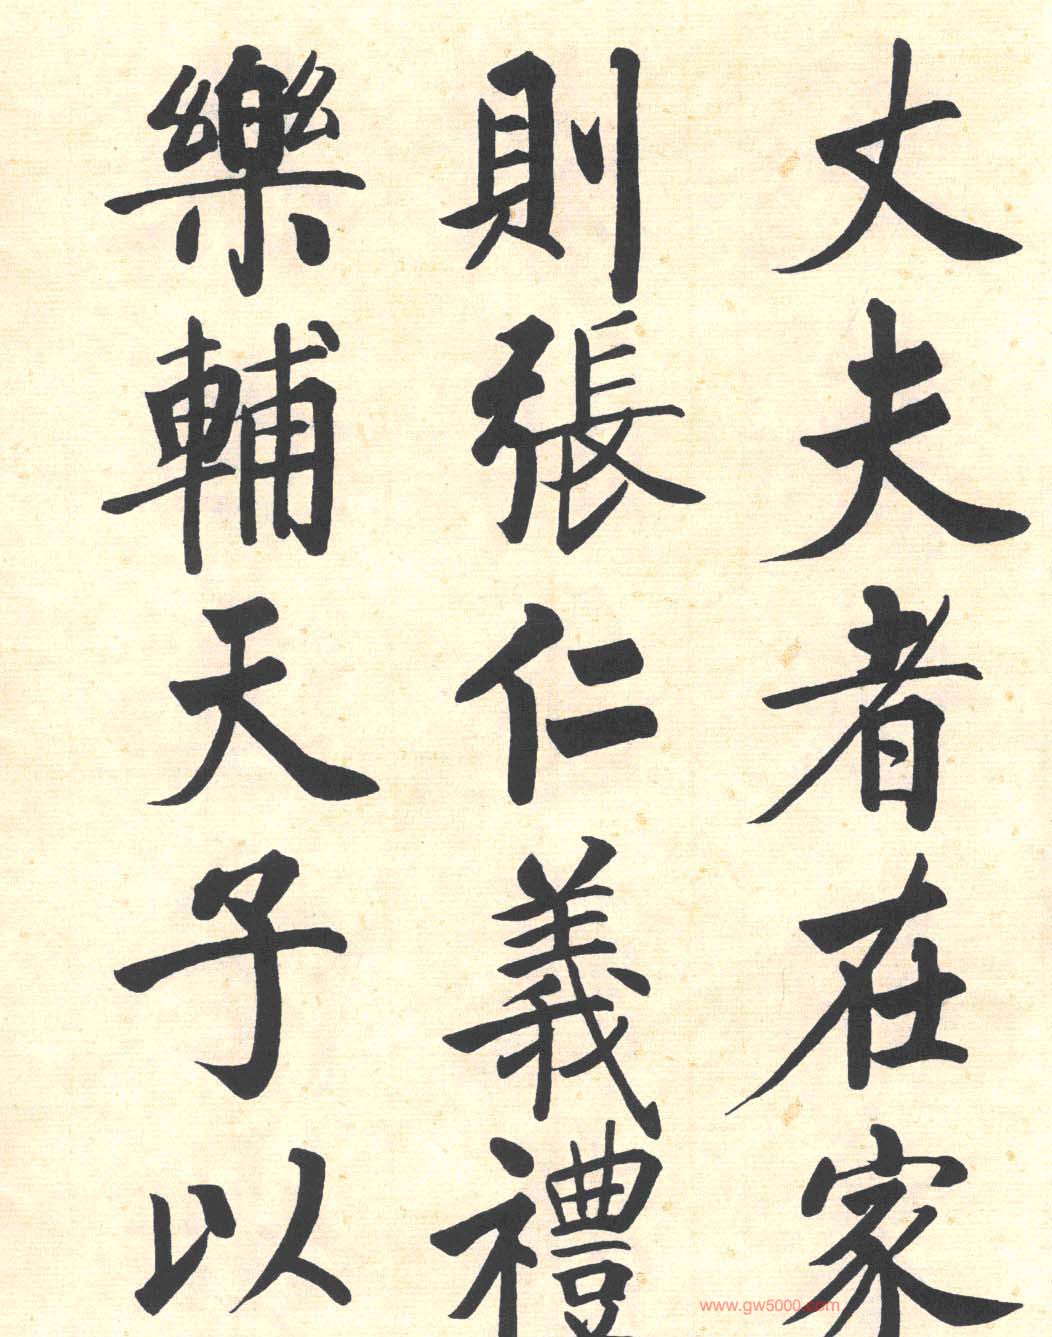 丈夫者在家
則張仁義禮
樂輔天子以
www.gw5000.com